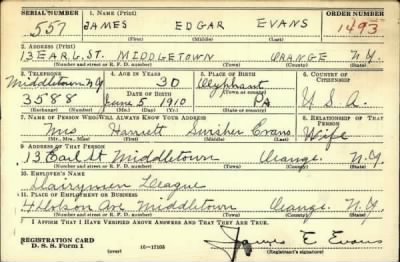 SERIAL NUMBER 1. NAME (Print) ORDER NUMBER
557 JAMES EDGAR EVANS 1493
(First) (Middle) (Last)
2. ADDRESS (Print)
13 EARL ST. MIDDLETOWN ORANGE N.Y.
(Number and street or R. F. D. number) (Town) (County) (State)
3. TELEPHONE 4. AGE IN YEARS 5. PLACE OF BIRTH 6. COUNTRY OF CITIZENSHIP
Middletown N.Y 30 Olyphant
DATE OF BIRTH (Town or county)
3588 June 5 1910 Pa U.S.A.
(Exchange) (Number) (Mo.) (Day) (Yr.) (State or country)
7. NAME OF PERSON WHO WILL ALWAYS KNOW YOUR ADDRESS 8. RELATIONSHIP OF THAT PERSON
Mrs Harriett Swisher Evans Wife
(Mr., Mrs., Miss) (First) (Middle) (Last)
9. ADDRESS OF THAT PERSON
13 Earl St Middletown Orange N.Y.
(Number and street or R. F. D. number) (Town) (County) (State)
10. EMPLOYER'S NAME
Dairymen League
11. PLACE OF EMPLOYMENT OR BUSINESS
Middletown Orange N.Y.
(Number and street or R. F. D. number) (Town) (County) (State)
I AFFIRM THAT I HAVE VERIFIED ABOVE ANSWERS AND THAT THEY ARE TRUE.
REGISTRATION CARD James E Evans
D. S. S. Form 1 (over) 16-17105 (Registrant's signature)